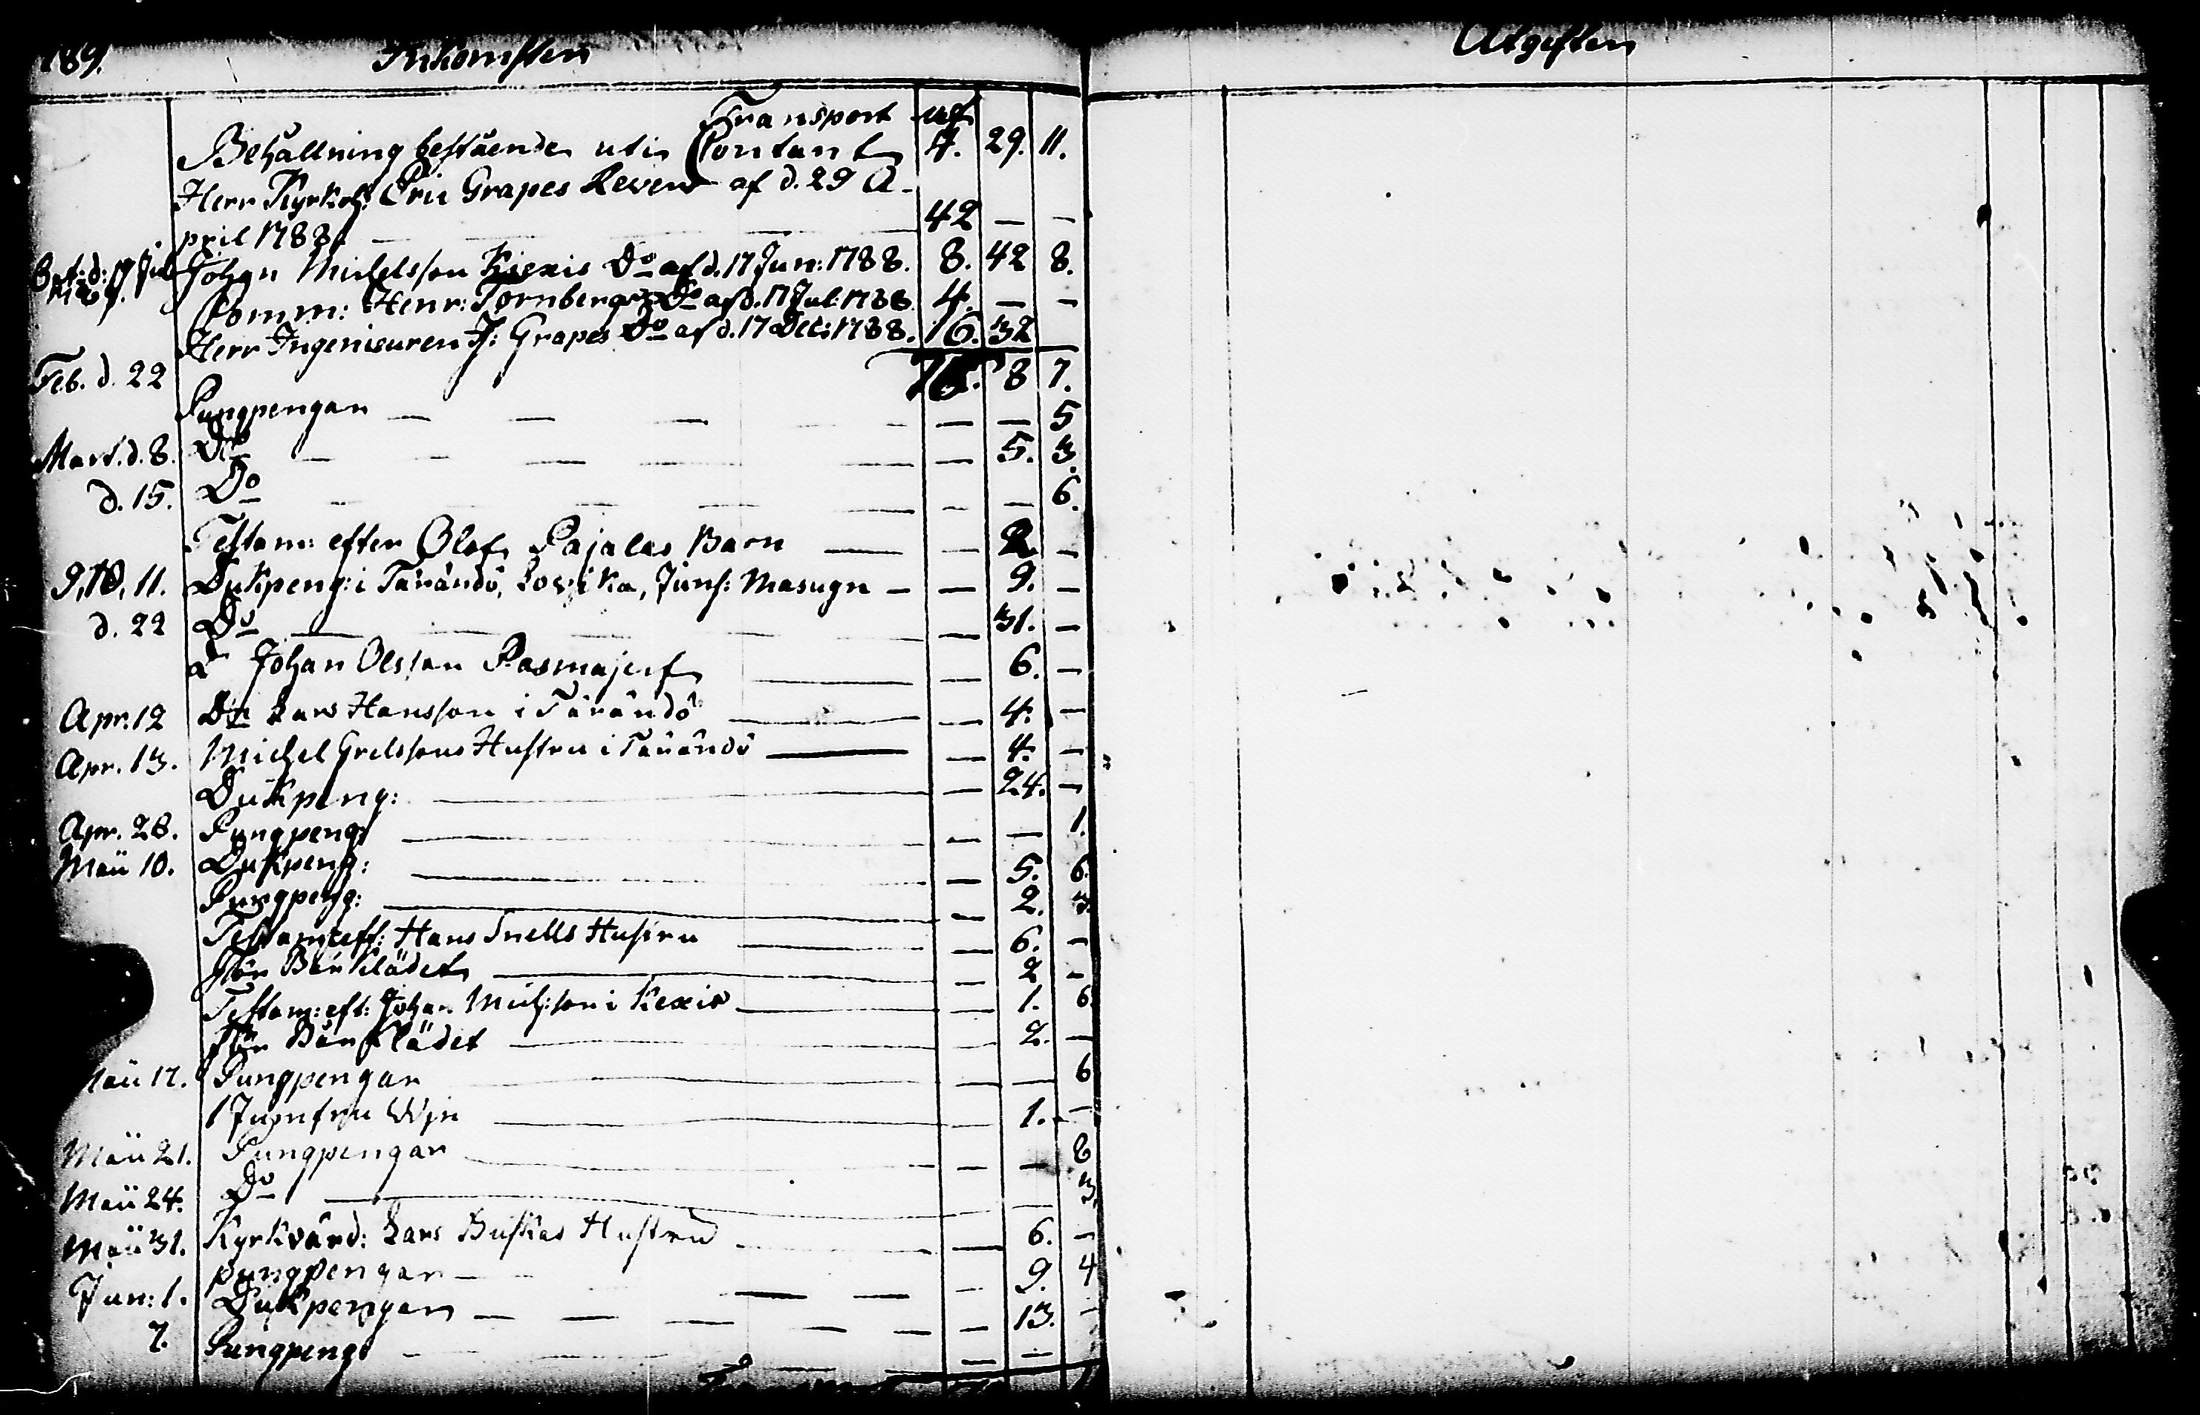 189. Inkomsten
Transport
Behållning bestående uti Contant 4. 29. 11.
Herr Kyrkoh: Eric Grapes Revers af d. 29 A-
pril 1788. — 42 — —
Bet: d: 17 Jul Johan Michelsson Kiexis Do af d. 17 Jun: 1788. 8. 42 8.
Comm: Henr: Tornbergs Do af d. 17 Jul: 1788. 4. — —
Herr Ingenieuren J: Grapes Do af d. 17 Dec: 1788. 16. 32
8 7.
Feb. d. 22 Pungpengar — — — — — 5
Mart. d. 8. Do — — — — — 5. 3.
d. 15. Do — — — — — 6.
Testam: efter Olof Pajalas Barn — — 2 —
9, 10, 11. Dukpeng: i Tärändö, Lovika, Juns: Masugn — — 9. —
d. 22 Do — — 31. —
Do Johan Olsson Rasmajerf — 6. —
Apr. 12 Do Lars Hansson i Tärändö — — 4. —
Apr. 13. Michel Grelssons Hustru i Tärändö — — 4. —
Dukpeng: — — 24. —
Apr. 26. Pungpeng: — — — 1.
Maii 10. Dukpeng: — — 5. 6.
Pungpeng: — — 2. 3.
Testam: eft: Hans Snells Hustru — — 6. —
för Bårklädet — — 2 —
Testam: eft: Johan Mich:son i Kexis — — 1. 6.
för Bårklädet — — 2. —
Maii 17. Pungpengar — — — 6
1 Jumfru Wijn — — 1. —
Maii 21. Pungpengar — — — 8
Maii 24. Do — — — 3.
Maii 31. Kyrkvärd: Lars Buskas Hustru — — 6. —
pungpengar — — 9. 4
Jun: 1. Dukpengar — — — — — 13. —
7. Pungpeng: — — — —
Utgiften